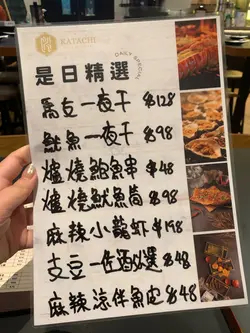 KATACHI
DAILY SPECIAL
是日精選
馬友一夜干 $128
魷魚一夜干 $98
爐燒鮑魚串 $48
爐燒魷魚筒 $98
麻辣小龍虾 $198
支豆 一 $48
麻辣涼伴魚皮 $48